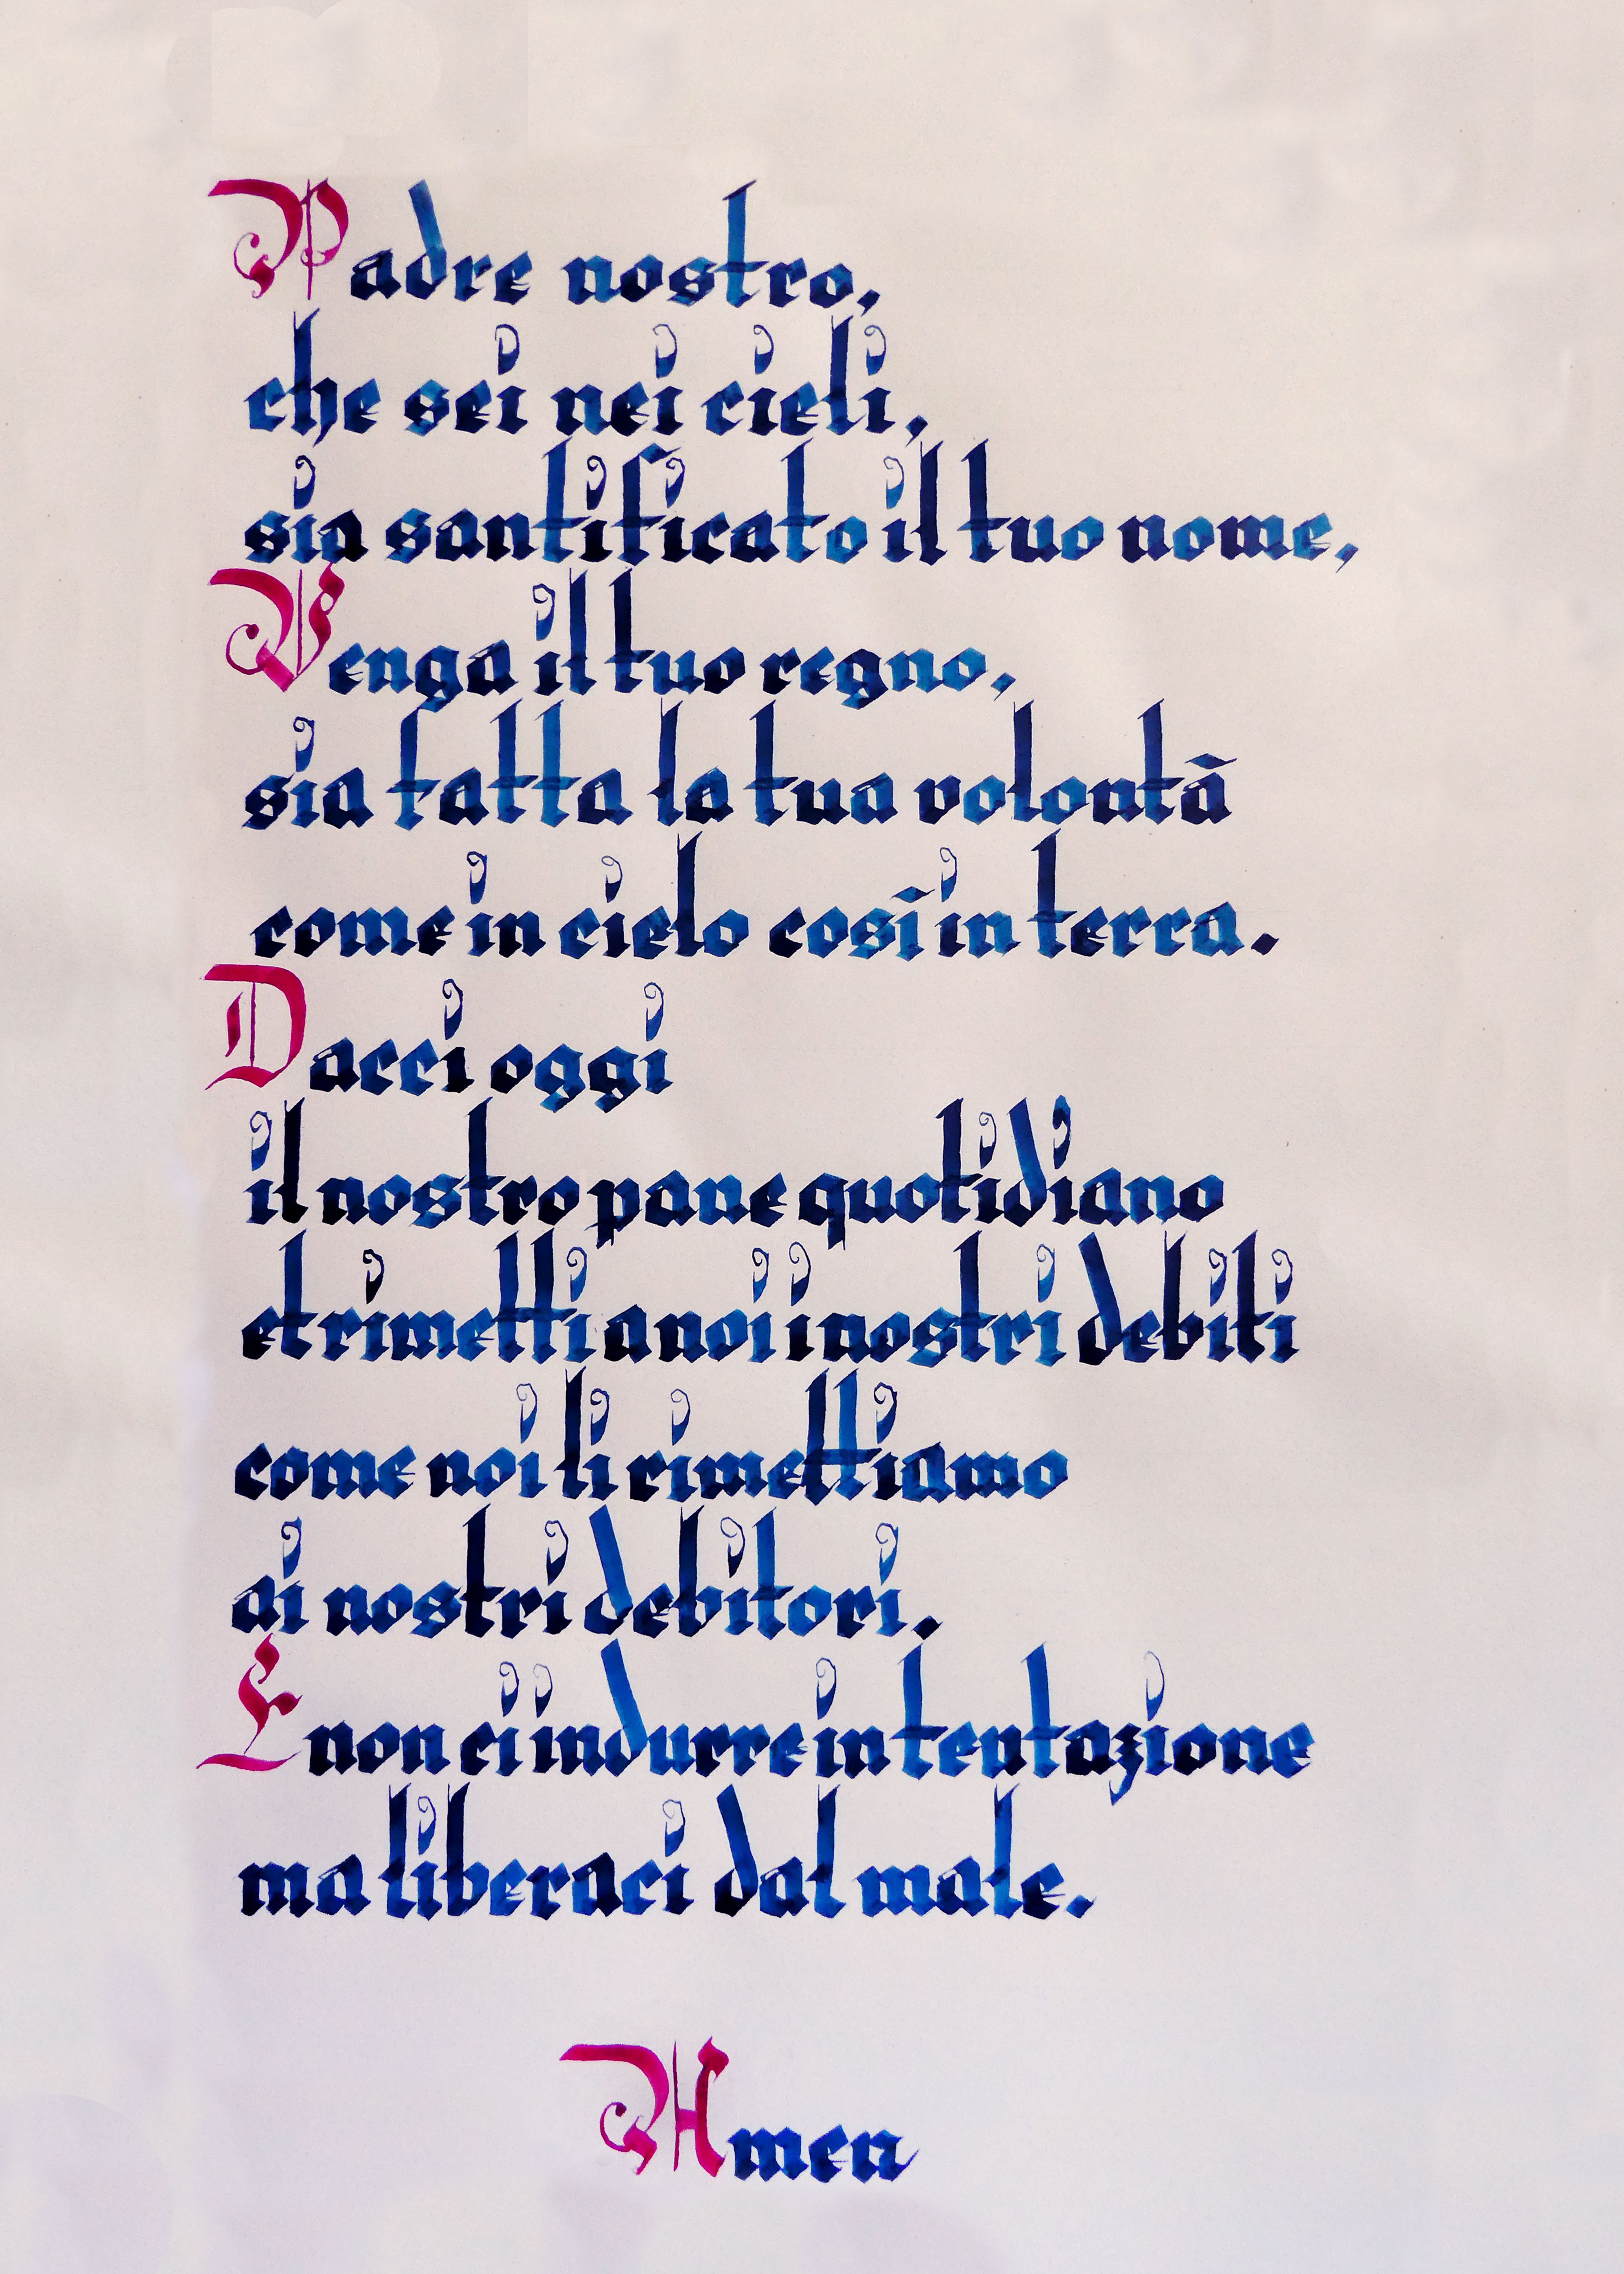 Padre nostro,
che sei nei cieli,
sia santificato il tuo nome,
Venga il tuo regno,
sia fatta la tua volontā
come in cielo cosī in terra.
Dacci oggi
il nostro pane quotidiano
et rimetti a noi i nostri debiti
come noi li rimettiamo
ai nostri debitori.
E non ci indurre in tentazione
ma liberaci dal male.
Amen